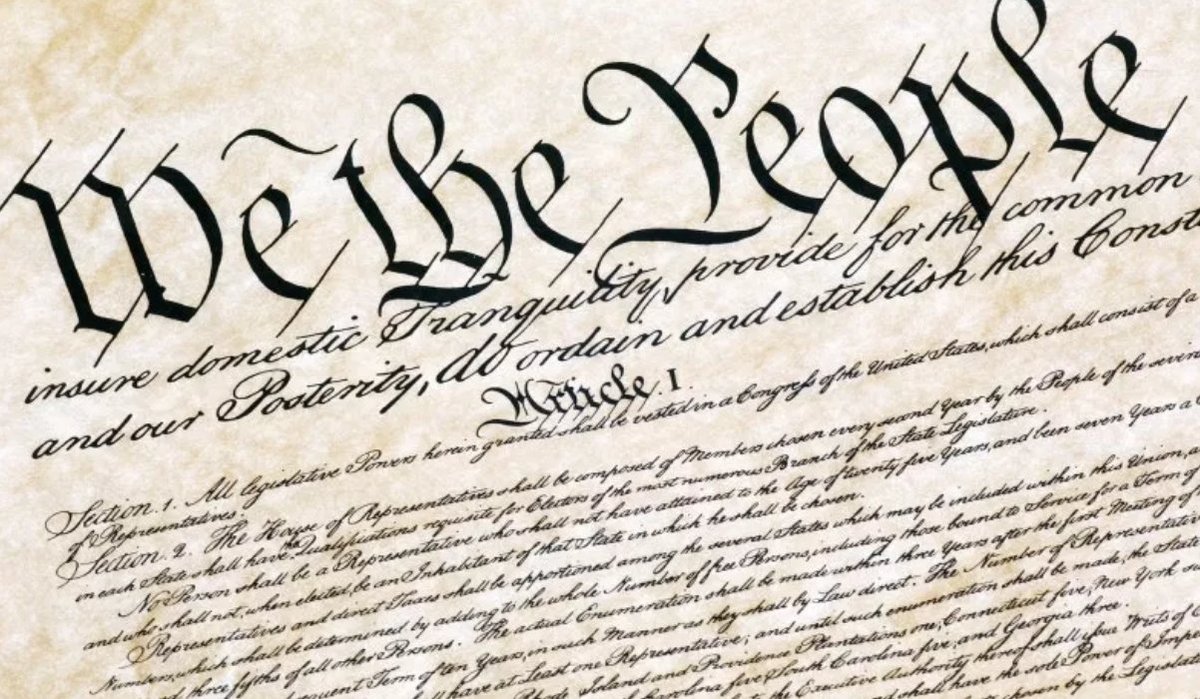 We the People
insure domestic Tranquility, provide for the common
and our Posterity, do ordain and establish this Const
Article. I.
Section. 1. All legislative Powers herein granted shall be vested in a Congress of the United States, which shall consist of a
of Representatives.
Section. 2. The House of Representatives shall be composed of Members chosen every second Year by the People of the several
in each State shall have Qualifications requisite for Electors of the most numerous Branch of the State Legislature.
No Person shall be a Representative who shall not have attained to the Age of twenty five Years, and been seven Years a
and who shall not, when elected, be an Inhabitant of that State in which he shall be chosen.
Representatives and direct Taxes shall be apportioned among the several States which may be included within this Union,
Numbers, which shall be determined by adding to the whole Number of free Persons, including those bound to Service for a Term of
three fifths of all other Persons. The actual Enumeration shall be made within three Years after the first Meeting of
quent Term of ten Years, in such Manner as they shall by Law direct. The Number of Representatives
have at Least one Representative; and until such enumeration shall be made, the State
Rhode Island and Providence Plantations one, Connecticut five, New York
Carolina five, South Carolina five, and Georgia three.
the Executive Authority thereof shall issue Writs of
and shall have the sole Power of Imp
by the Legislat